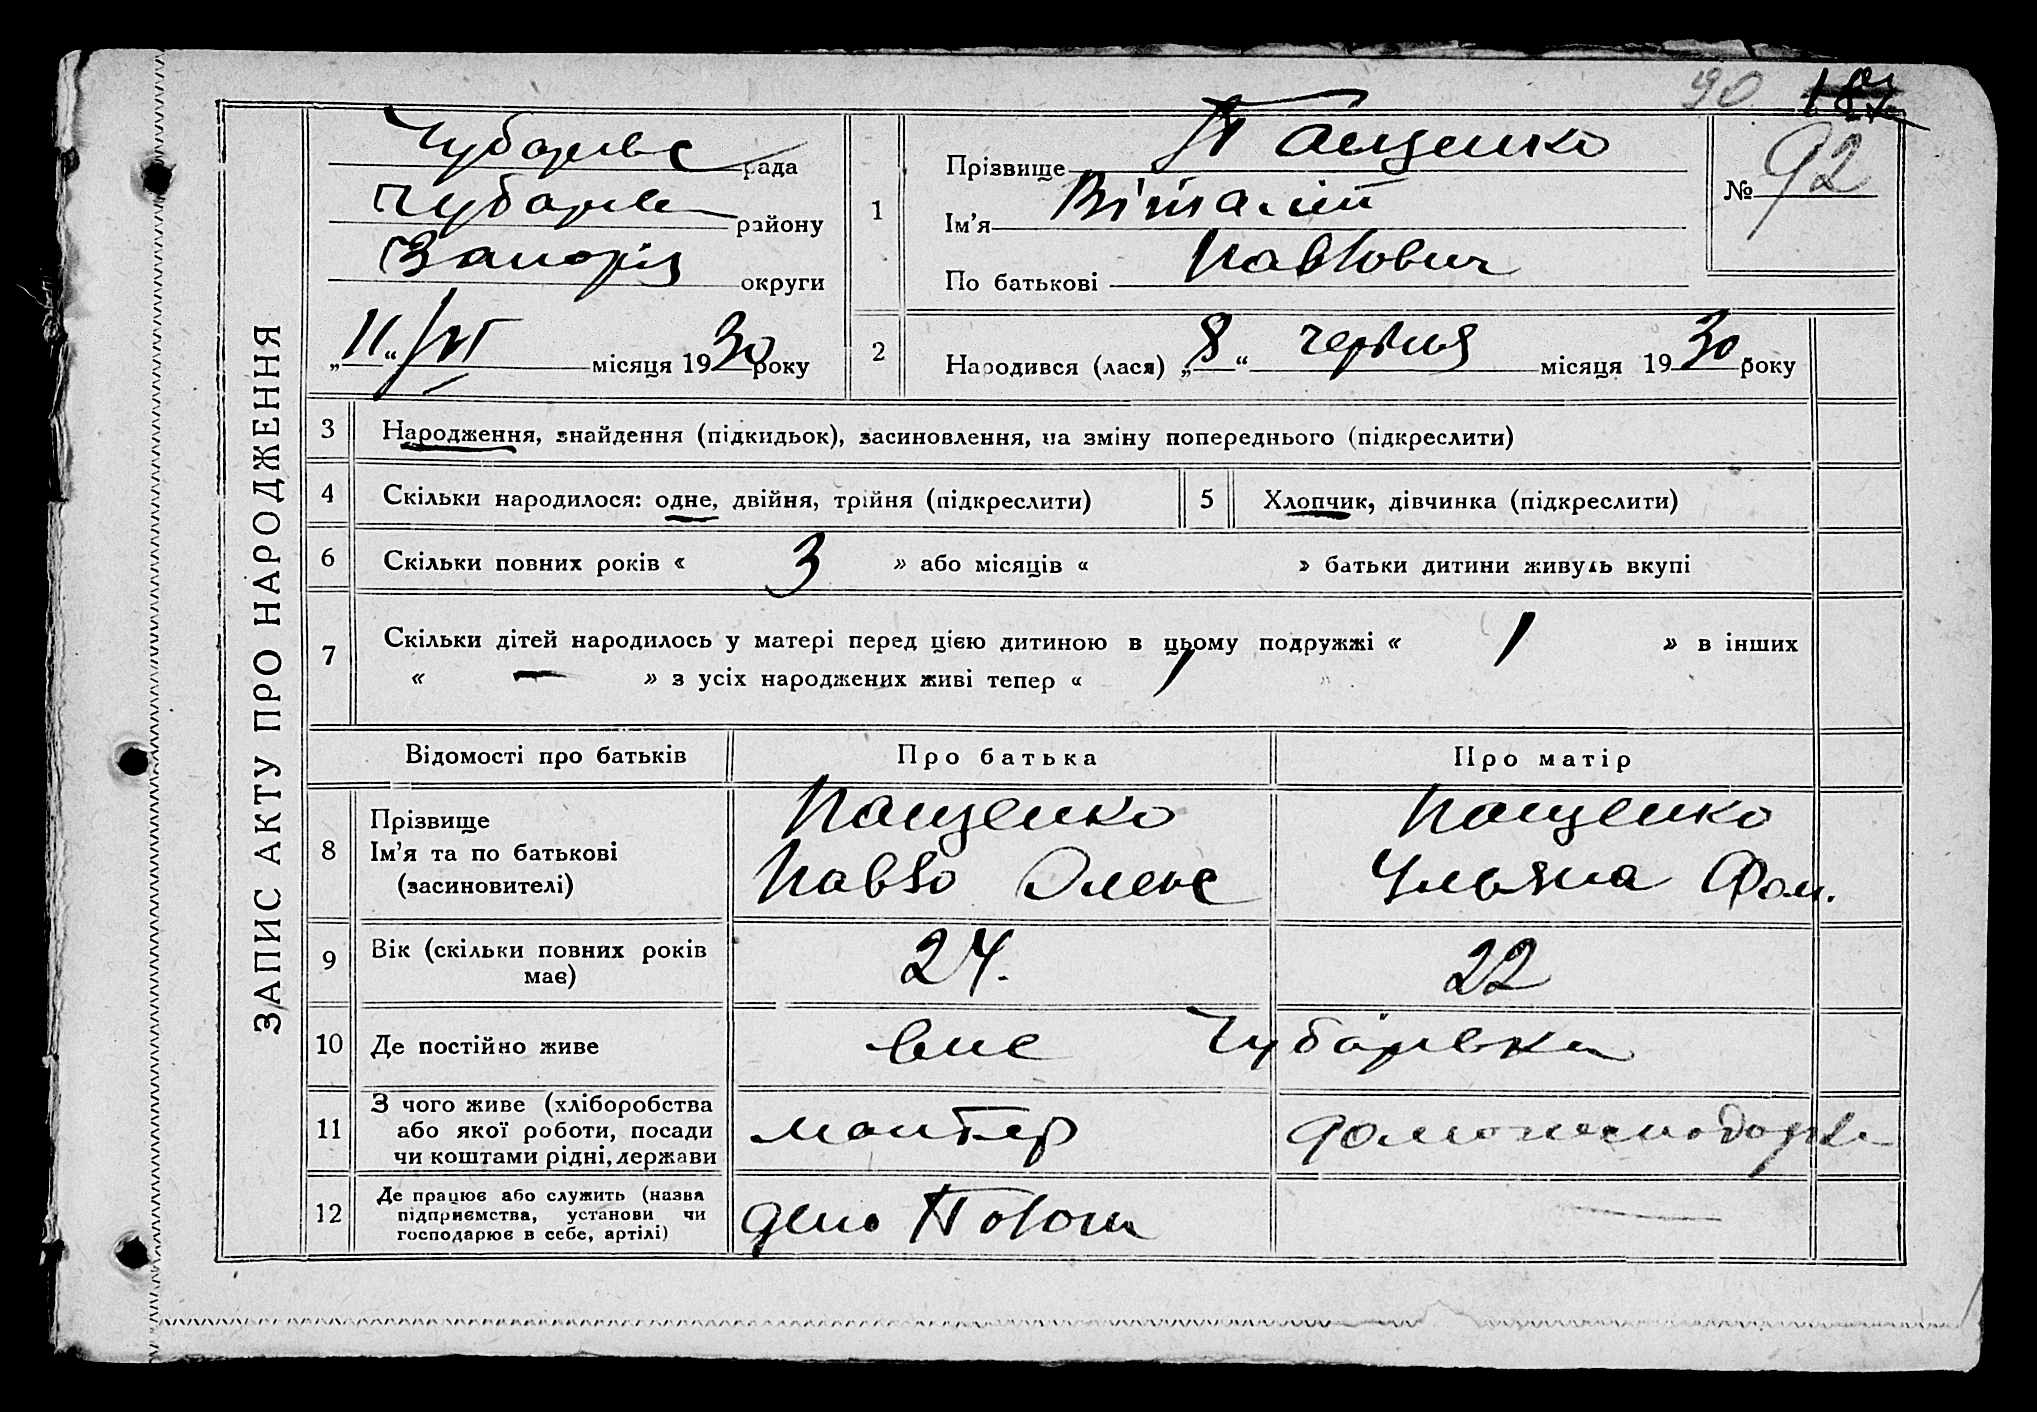 90 187
ЗАПИС АКТУ ПРО НАРОДЖЕННЯ
Чубарівс рада
Чубарів району
Запоріз округи
„11“ VI місяця 1930 року
1
Прізвище Пащенко
Ім'я Віталій
По батькові Павлович
№ 92
2
Народився (лася) „8“ червня місяця 1930 року
3 Народження, знайдення (підкидьок), засиновлення, на зміну попереднього (підкреслити)
4 Скільки народилося: одне, двійня, трійня (підкреслити) 5 Хлопчик, дівчинка (підкреслити)
6 Скільки повних років « 3 » або місяців « » батьки дитини живуть вкупі
7 Скільки дітей народилось у матері перед цією дитиною в цьому подружжі « 1 » в інших
« — » з усіх народжених живі тепер « 1 »
Відомості про батьків Про батька Про матір
8 Прізвище
Ім'я та по батькові
(засиновителі)
Пащенко
Павло Олекс
Пащенко
Ульяна Фом.
9 Вік (скільки повних років
має)
24. 22
10 Де постійно живе Чубарівка
11 З чого живе (хліборобства
або якої роботи, посади
чи коштами рідні, держави
монтер
12 Де працює або служить (назва
підприємства, установи чи
господарює в себе, артілі)
депо Пологи —